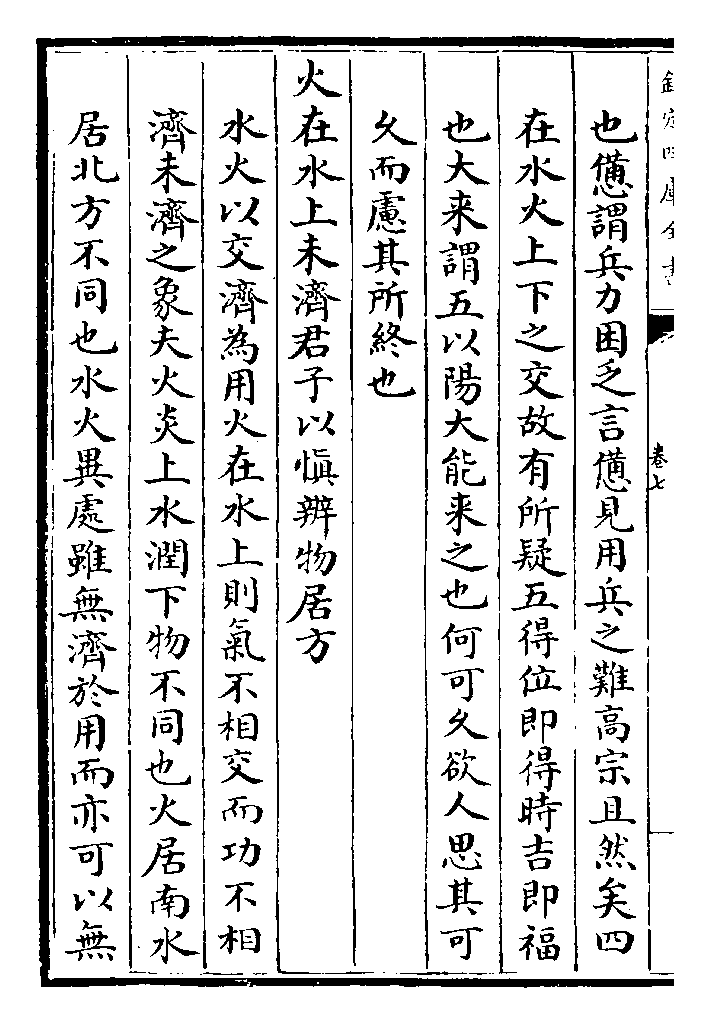 欽定四庫全書
卷七
也憊謂兵力困乏言憊見用兵之難高宗且然矣四
在水火上下之交故有所疑五得位即得時吉即福
也大来謂五以陽大能来之也何可久欲人思其可
久而慮其所終也
火在水上未濟君子以慎辨物居方
水火以交濟為用火在水上則氣不相交而功不相
濟未濟之象夫火炎上水潤下物不同也火居南水
居北方不同也水火異處雖無濟於用而亦可以無